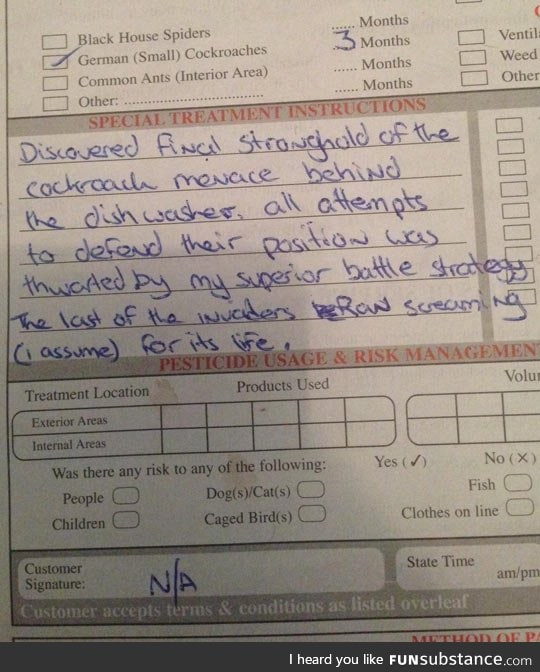 Black House Spiders ...... Months
German (Small) Cockroaches 3 Months Ventil
Common Ants (Interior Area) ...... Months Weed
Other: ................................ ...... Months Other
SPECIAL TREATMENT INSTRUCTIONS
Discovered Final Stronghold of the
cockroach menace behind
the dishwasher. all attempts
to defend their position was
thwarted by my superior battle strategy
The last of the invaders Ran screaming
(i assume) for its life.
PESTICIDE USAGE & RISK MANAGEMEN
Treatment Location Products Used Volu
Exterior Areas
Internal Areas
Was there any risk to any of the following: Yes (✓) No (✕)
People Dog(s)/Cat(s) Fish
Children Caged Bird(s) Clothes on line
Customer Signature: N/A State Time am/pm
Customer accepts terms & conditions as listed overleaf
METHOD OF PA
I heard you like FUNsubstance.com